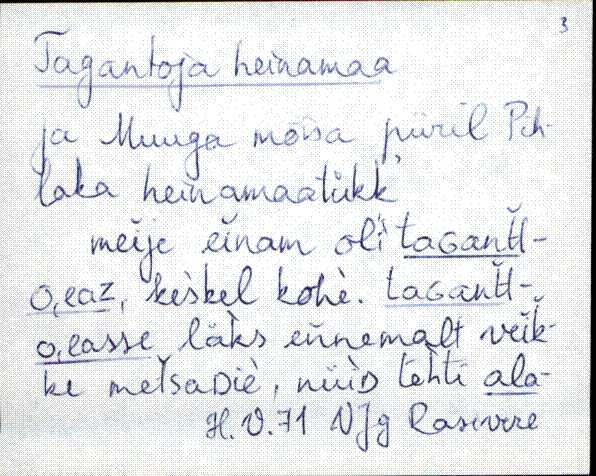 3
Tagantoja heinamaa
ja Muuga mõisa piiril Pih-
laka heinamaatükk
meĭje eĭnam oli taGantt-
o,eaz, kèskel kohè. taGantt-
o,easse läks eńnemalt veĭk-
ke metsaDiè, nüiD tehti ala-
H. V. 71 VJg Rasivere